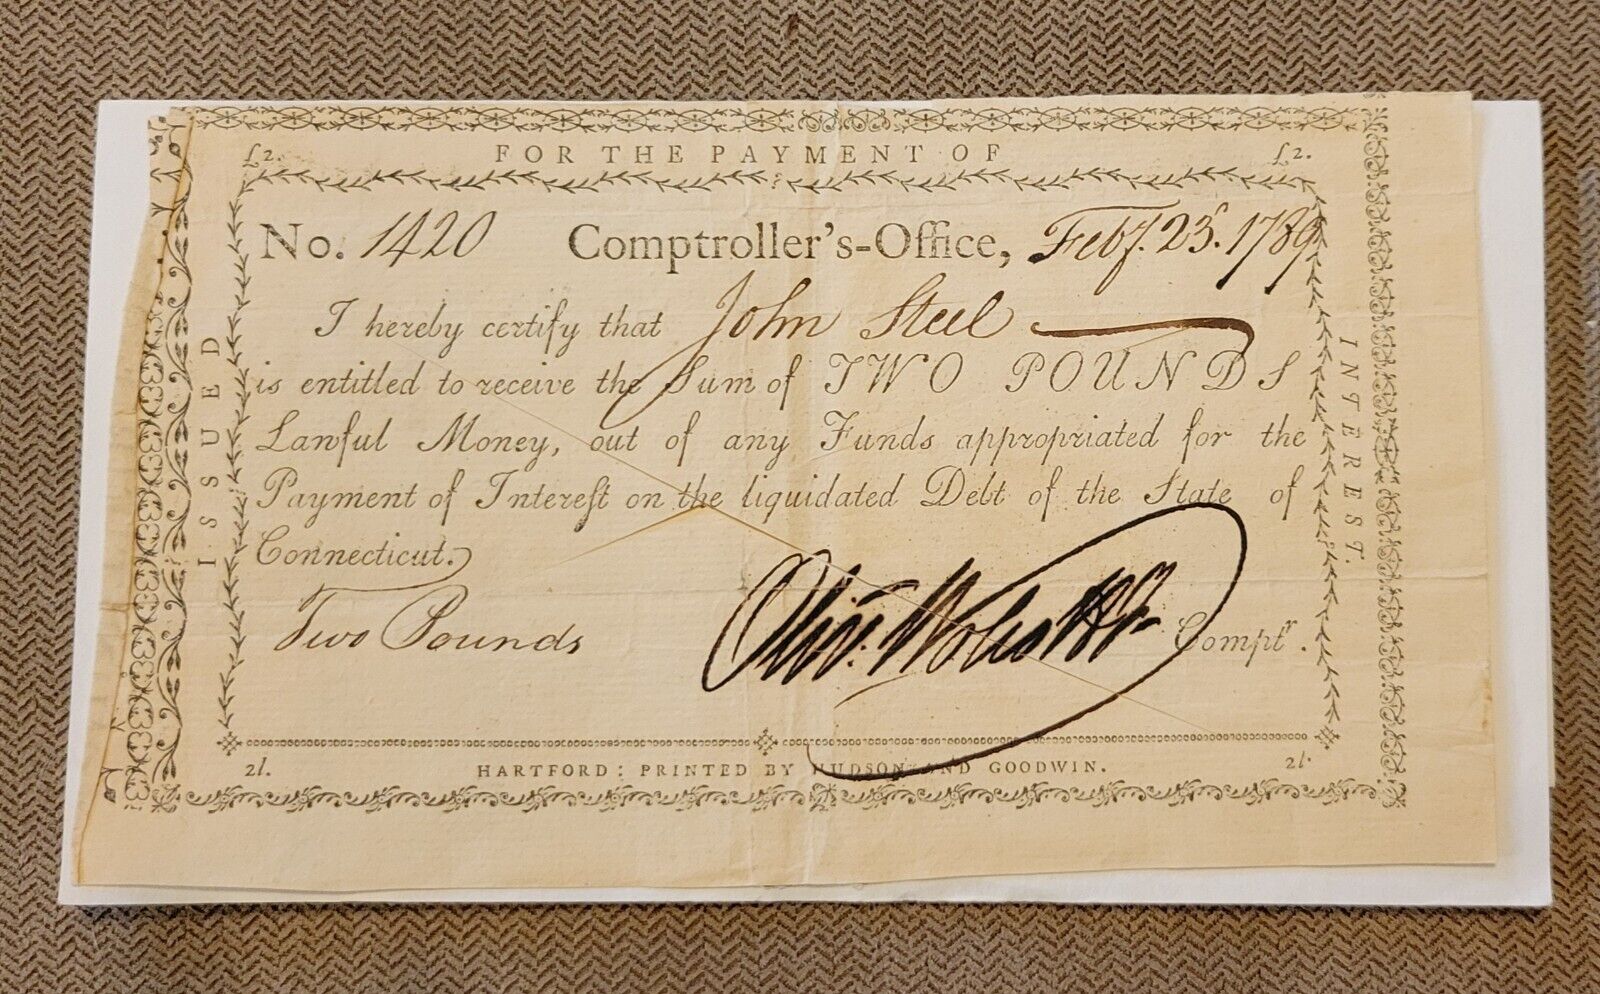 £2. FOR THE PAYMENT OF £2.
No. 1420 Comptroller's-Office, Feby. 23. 1789
I hereby certify that John Steel
is entitled to receive the Sum of TWO POUNDS
Lawful Money, out of any Funds appropriated for the
Payment of Intereſt on the liquidated Debt of the State of
Connecticut.
Two Pounds Olivr. Wolcott Jr Comptr.
2l. HARTFORD: PRINTED BY HUDSON AND GOODWIN. 2l.
ISSUED
INTEREST.